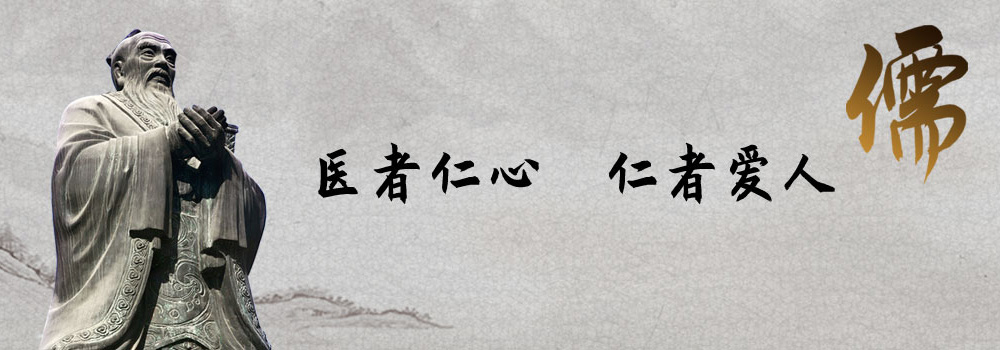 医者仁心 仁者爱人
儒